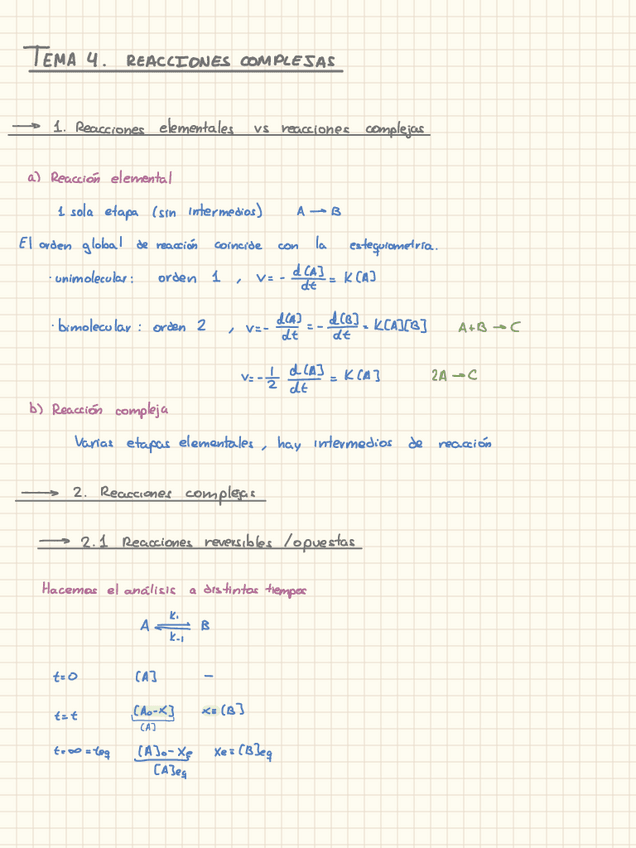 TEMA 4. REACCIONES COMPLEJAS
→ 1. Reacciones elementales vs reacciones complejas
a) Reacción elemental
1 sola etapa (sin intermedios) A → B
El orden global de reacción coincide con la estequiometría.
· unimolecular: orden 1 , v = - d[A]/dt = K[A]
· bimolecular: orden 2 , v = - d[A]/dt = - d[B]/dt = K[A][B] A+B → C
v = - 1/2 d[A]/dt = K[A] 2A → C
b) Reacción compleja
Varias etapas elementales, hay intermedios de reacción
→ 2. Reacciones complejas
→ 2.1 Reacciones reversibles /opuestas
Hacemos el análisis a distintos tiempos
K₁
A ⇌ B
K₋₁
t=0 [A] –
t=t [A₀-x] x=[B]
[A]
t=∞=teq [A]₀-Xe Xe=[B]eq
[A]eq